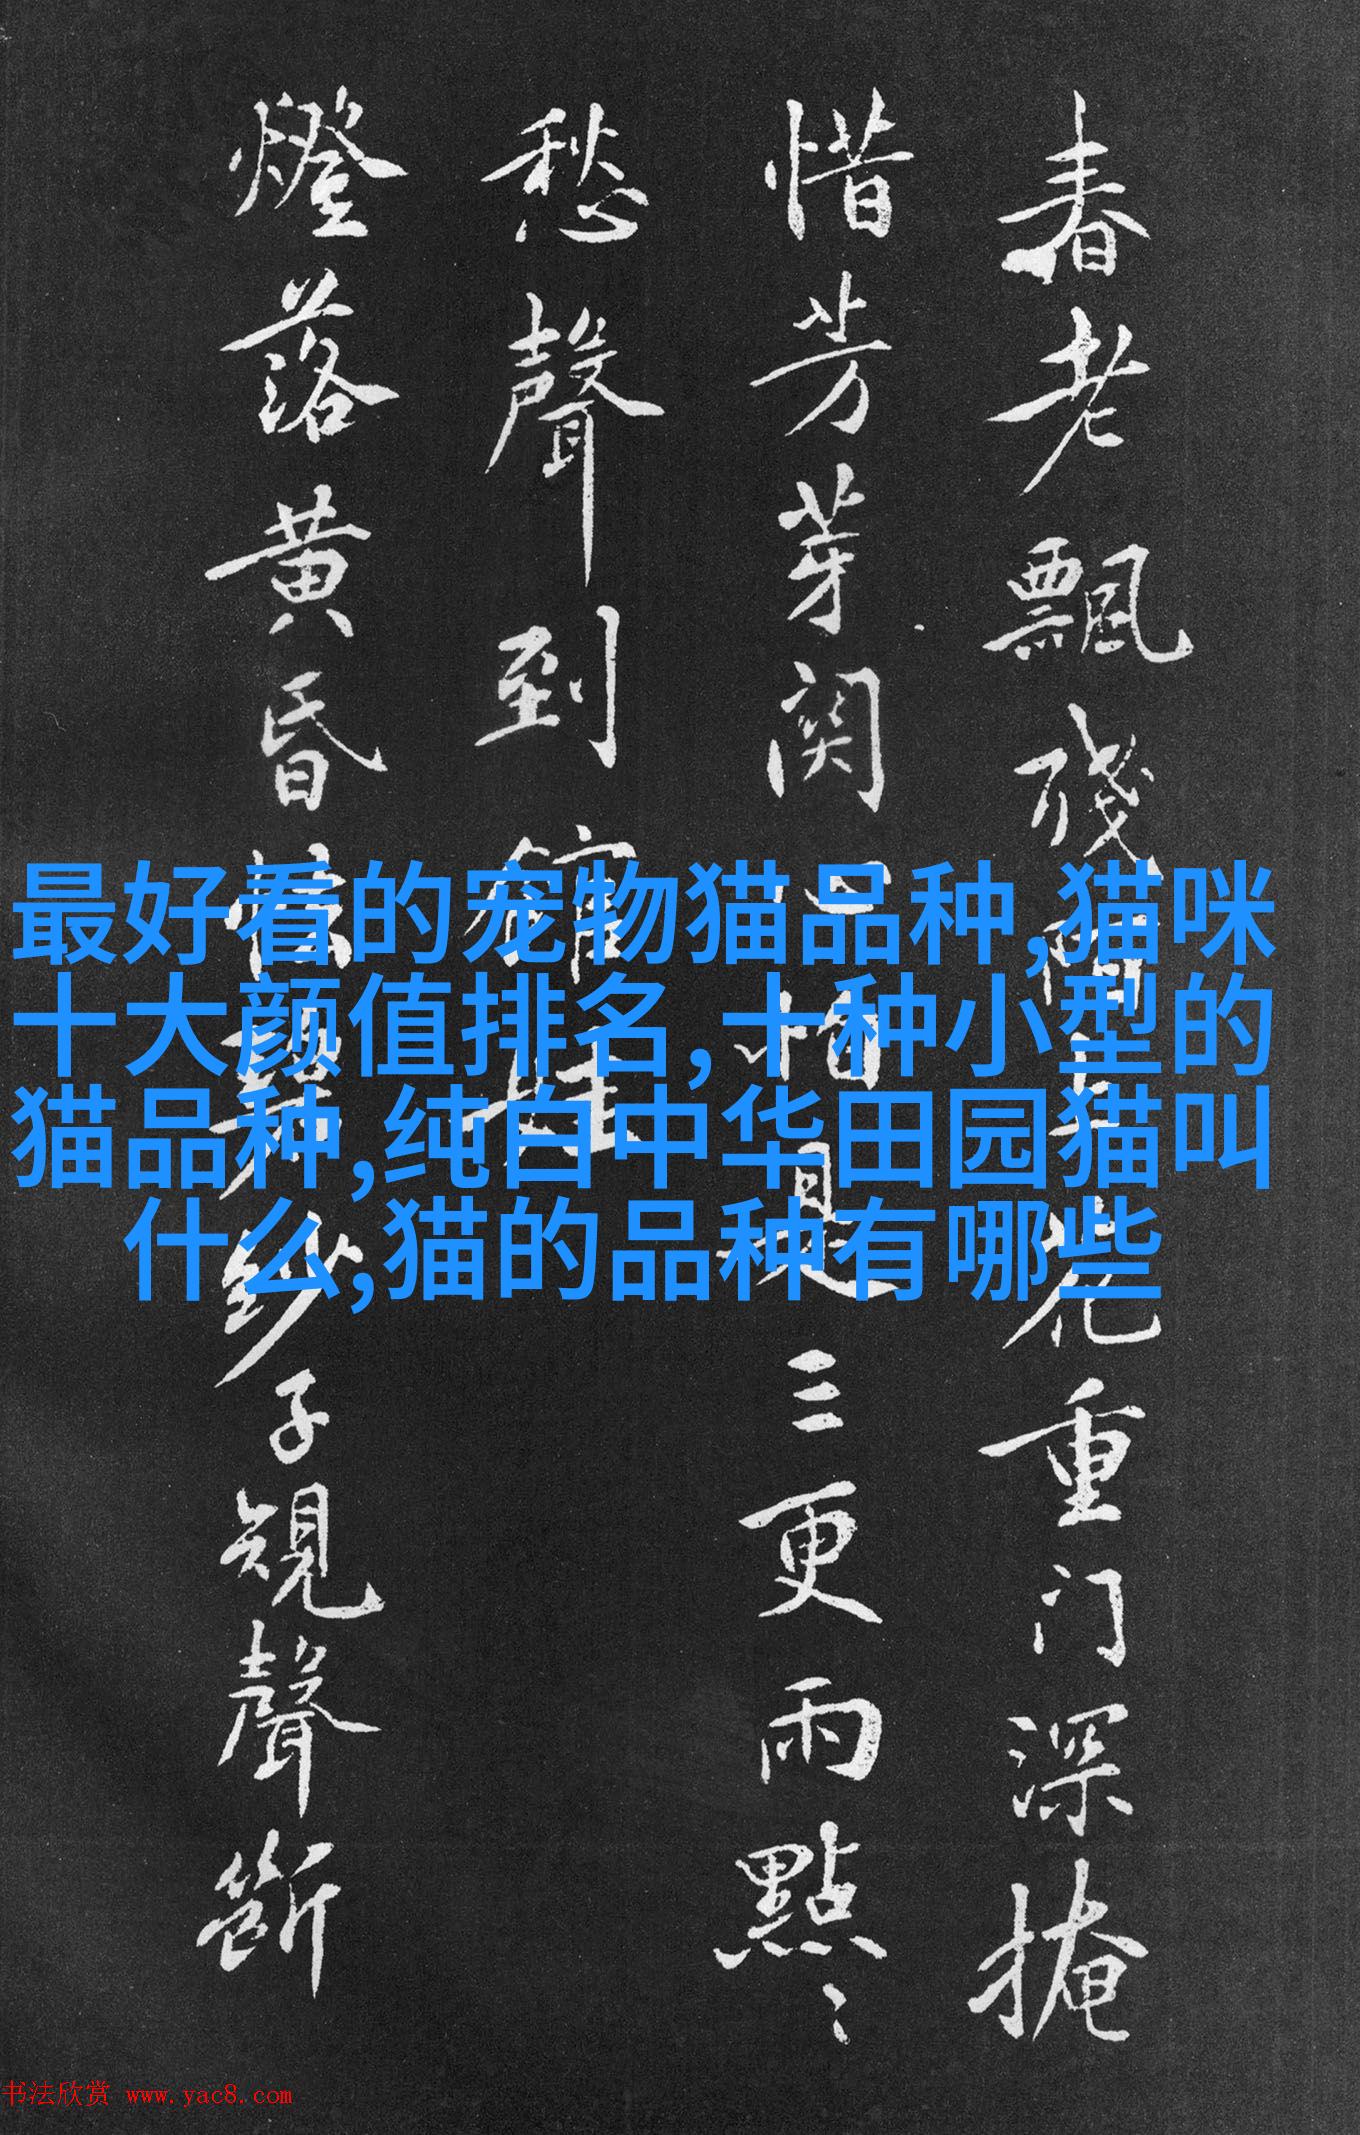 春老飄殘階上花重门深掩
惜芳芽関心怕是三更雨點〻
愁聲到
燈落黄昏子規聲斷
最好看的宠物猫品种,猫咪
十大颜值排名,十种小型的
猫品种,纯白中华田园猫叫
什么,猫的品种有哪些
书法欣赏 www.yac8.com